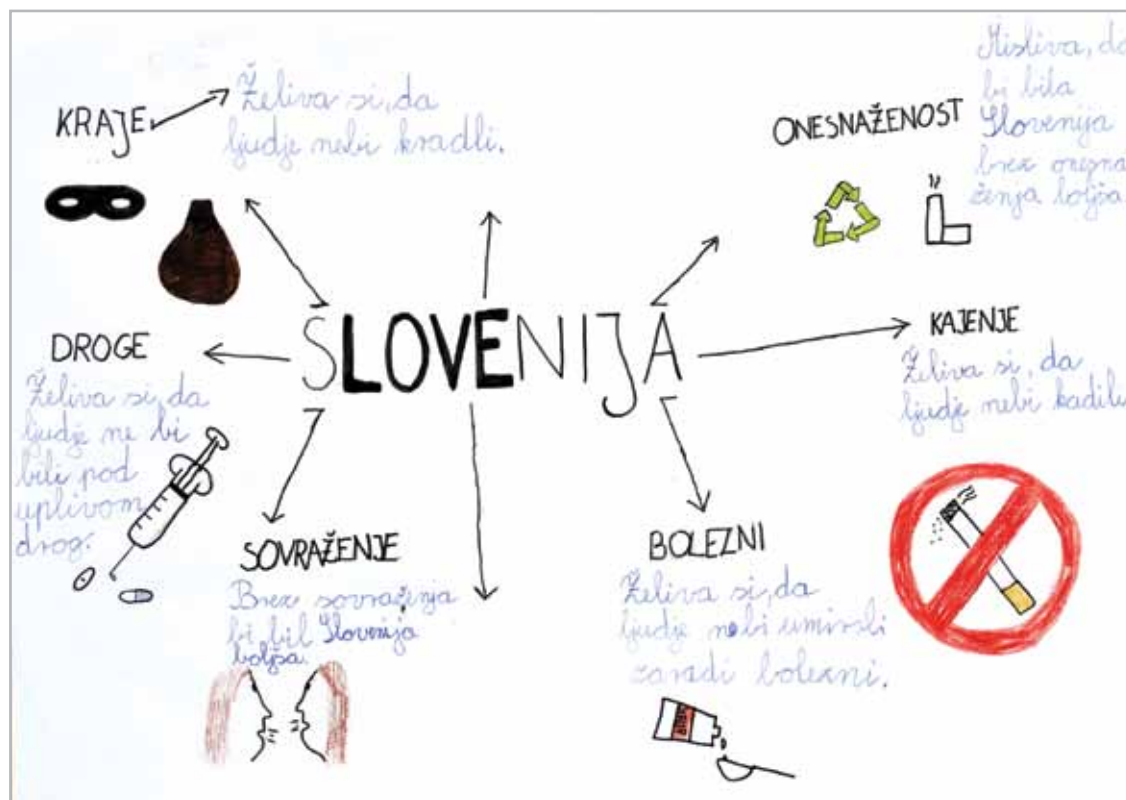 KRAJE
Želiva si, da
ljudje nebi kradli.
ONESNAŽENOST
Misliva, da
bi bila
Slovenija
brez onesna
ženja boljša
SLOVENIJA
DROGE
Želiva si, da
ljudje ne bi
bili pod
uplivom
drog.
KAJENJE
Želiva si, da
ljudje nebi kadili
SOVRAŽENJE
Brez sovraženja
bi bil Slovenija
boljša.
BOLEZNI
Želiva si, da
ljudje nebi umirali
zaradi bolezni.
SIRUP